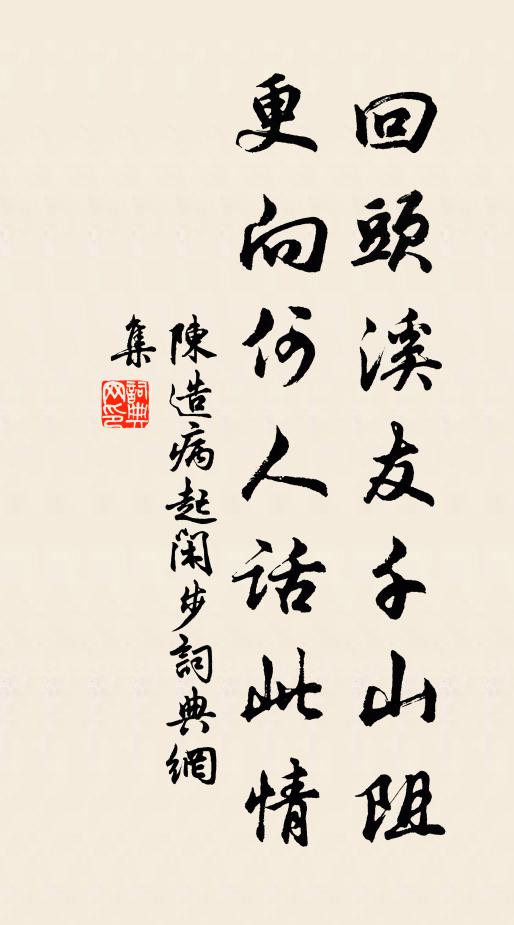 回頭溪友千山阻
更向何人話此情
陳造病起閑步詞典網
集
詞典
网印